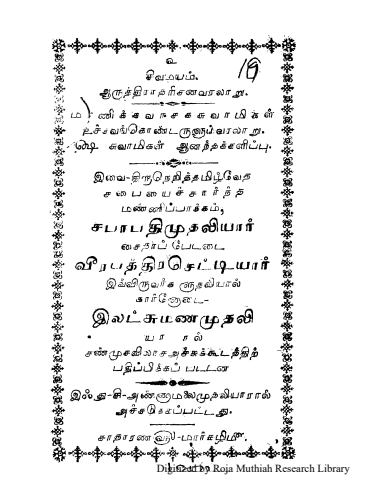 உ
சிவமயம்.
19
ஆருத்திராதரிசனவரலாறு.
மாணிக்கவாசகசுவாமிகள்
உச்சவங்கொண்டருளும்வரலாறு.
௸ சுவாமிகள் ஆனந்தக்களிப்பு.
இவை-திருநெறித்தமிழ்வேத
சபையைச்சார்ந்த
மண்ணிப்பாக்கம்,
சபாபதிமுதலியார்
சைதாப் பேட்டை
வீரபத்திரசெட்டியார்
இவ்விருவர்க ளுதவியால்
கார்ணேடை-
இலட்சுமணமுதலி
யா ரால்
சண்முகவிலாசஅச்சுக்கூடத்திற்
பதிப்பிக்கப் பட்டன
இஃது-தி-அண்ணாமலைமுதலியாரால்
அச்சிடுக்கப்பட்டது.
சாதாரண௵-மார்கழி௴.
Digitized by Roja Muthiah Research Library